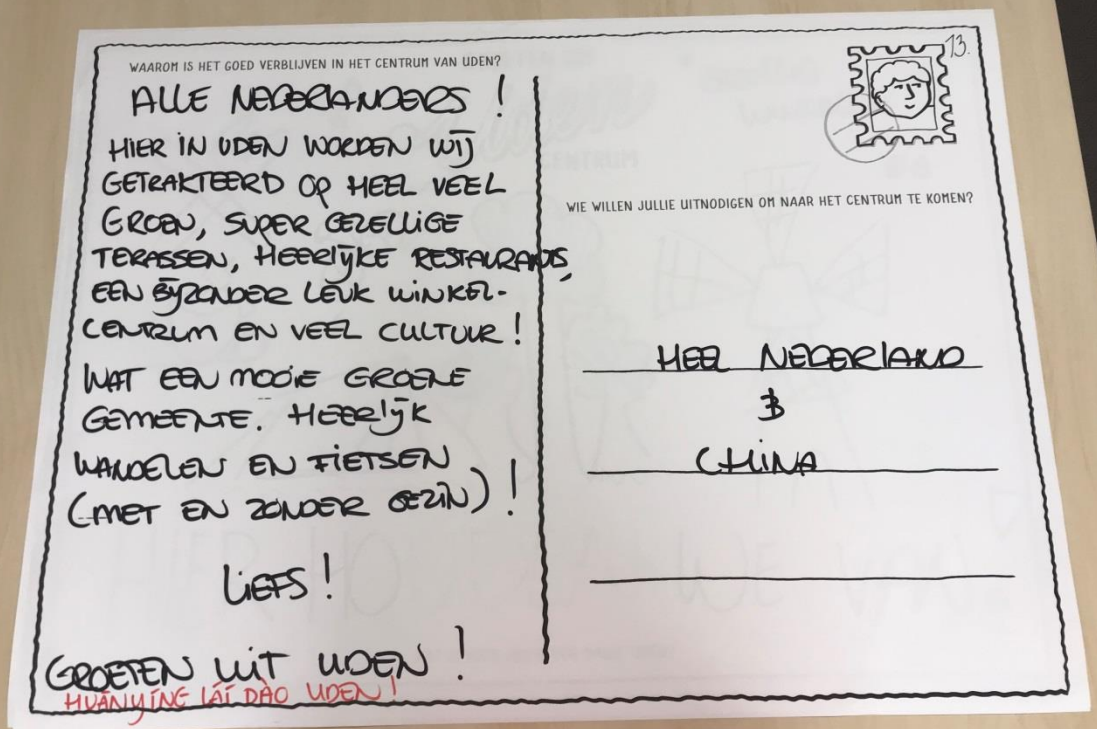 WAAROM IS HET GOED VERBLIJVEN IN HET CENTRUM VAN UDEN?
ALLE NEDERLANDERS !
HIER IN UDEN WORDEN WIJ
GETRAKTEERD OP HEEL VEEL
GROEN, SUPER GEZELLIGE
TERASSEN, HEERLIJKE RESTAURANTS,
EEN BIJZONDER LEUK WINKEL-
CENTRUM EN VEEL CULTUUR !
WAT EEN MOOIE GROENE
GEMEENTE. HEERLIJK
WANDELEN EN FIETSEN
(MET EN ZONDER GEZIN) !
LIEFS !
GROETEN UIT UDEN !
HUĀNYÍNG LÁI DÀO UDEN !
13.
WIE WILLEN JULLIE UITNODIGEN OM NAAR HET CENTRUM TE KOMEN?
HEEL NEDERLAND
&
CHINA